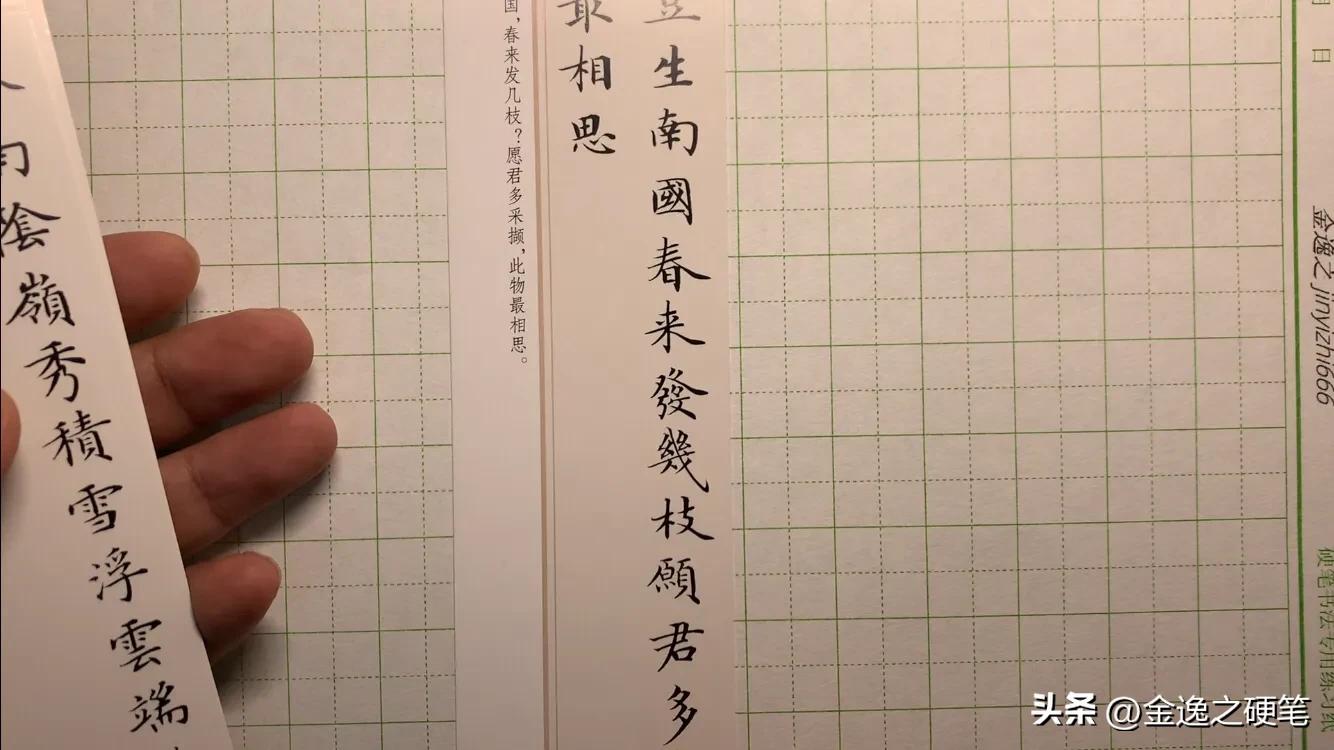 豆生南國春来發幾枝願君多
最相思
国，春来发几枝？愿君多采撷，此物最相思。
陰嶺秀積雪浮雲端
日
金逸之 jinyizhi666
硬笔书法专用练习纸
头条 @金逸之硬笔